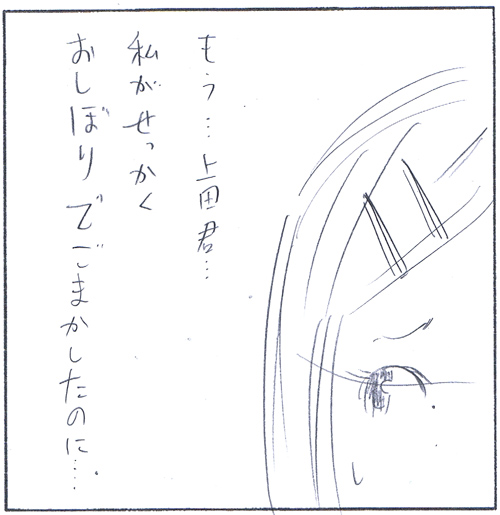 もう…上田君…
私がせっかく
おしぼりでごまかしたのに……